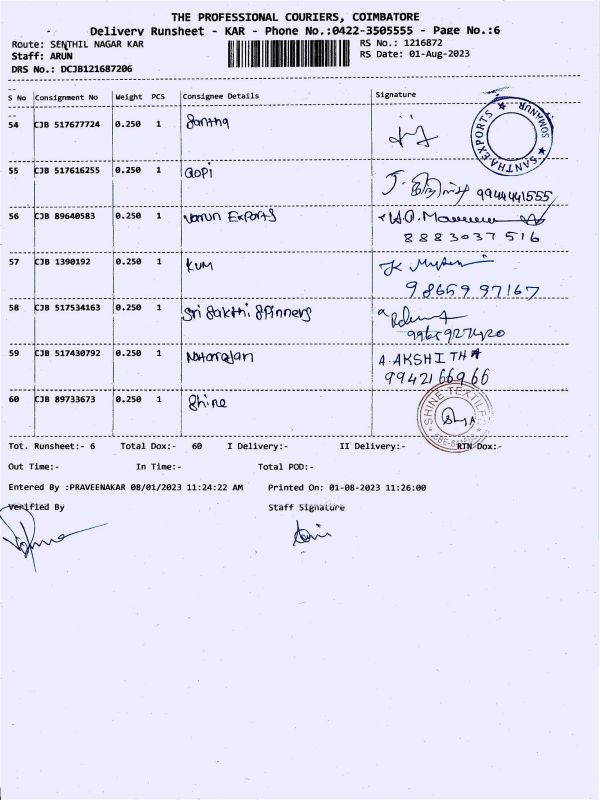 THE PROFESSIONAL COURIERS, COIMBATORE
Delivery Runsheet - KAR - Phone No.:0422-3505555 - Page No.:6
Route: SENTHIL NAGAR KAR
RS No.: 1216872
Staff: ARUN
RS Date: 01-Aug-2023
DRS No.: DCJB121687206
S No Consignment No Weight PCS Consignee Details Signature
54 CJB 517677724 0.250 1 Santha
SANTHA EXPORTS SOMANUR
55 CJB 517616255 0.250 1 Gopi
9944441555
56 CJB 89640583 0.250 1 Varun Exports
8883037516
57 CJB 1390192 0.250 1 KUM
9865997167
58 CJB 517534163 0.250 1 Sri Sakthi Spinners
9965927420
59 CJB 517430792 0.250 1 Natarajan A. AKSHITHA
9942166966
60 CJB 89733673 0.250 1 Shine
SHINE TEXTILE
Tot. Runsheet:- 6 Total Dox:- 60 I Delivery:- II Delivery:- RTN Dox:-
Out Time:- In Time:- Total POD:-
Entered By :PRAVEENAKAR 08/01/2023 11:24:22 AM Printed On: 01-08-2023 11:26:00
Verified By Staff Signature